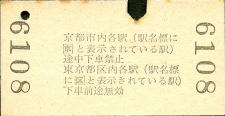 6108
京都市内各駅(駅名標に
㋖と表示されている駅)
途中下車禁止
東京都区内各駅(駅名標
に㋐と表示されている駅)
下車前途無効
6108